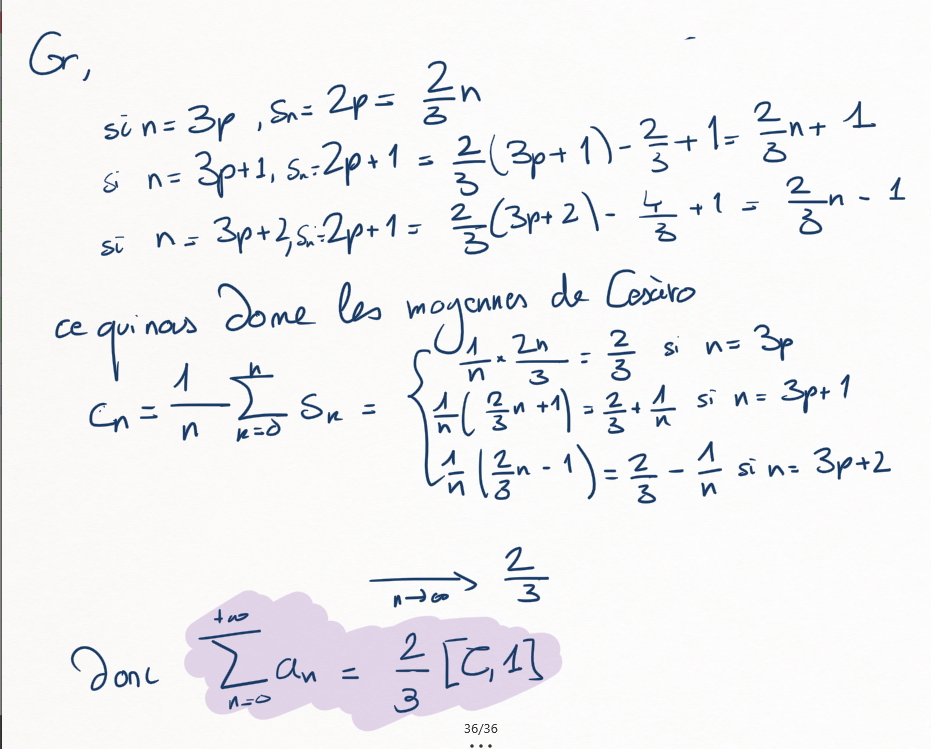 Gr,
si n = 3p , Sn = 2p = 2/3 n
si n = 3p+1, Sn = 2p+1 = 2/3 (3p+1) - 2/3 + 1 = 2/3 n + 1
si n = 3p+2, Sn = 2p+1 = 2/3 (3p+2) - 4/3 + 1 = 2/3 n - 1
ce qui nous donne les moyennes de Cesàro
Cn = 1/n ∑_{k=0}^{n} Sk = { 1/n × 2n/3 = 2/3 si n = 3p
1/n ( 2/3 n + 1) = 2/3 + 1/n si n = 3p+1
1/n ( 2/3 n - 1 ) = 2/3 - 1/n si n = 3p+2
⟶_{n→∞} 2/3
Donc ∑_{n=0}^{+∞} an = 2/3 [C,1]
36/36